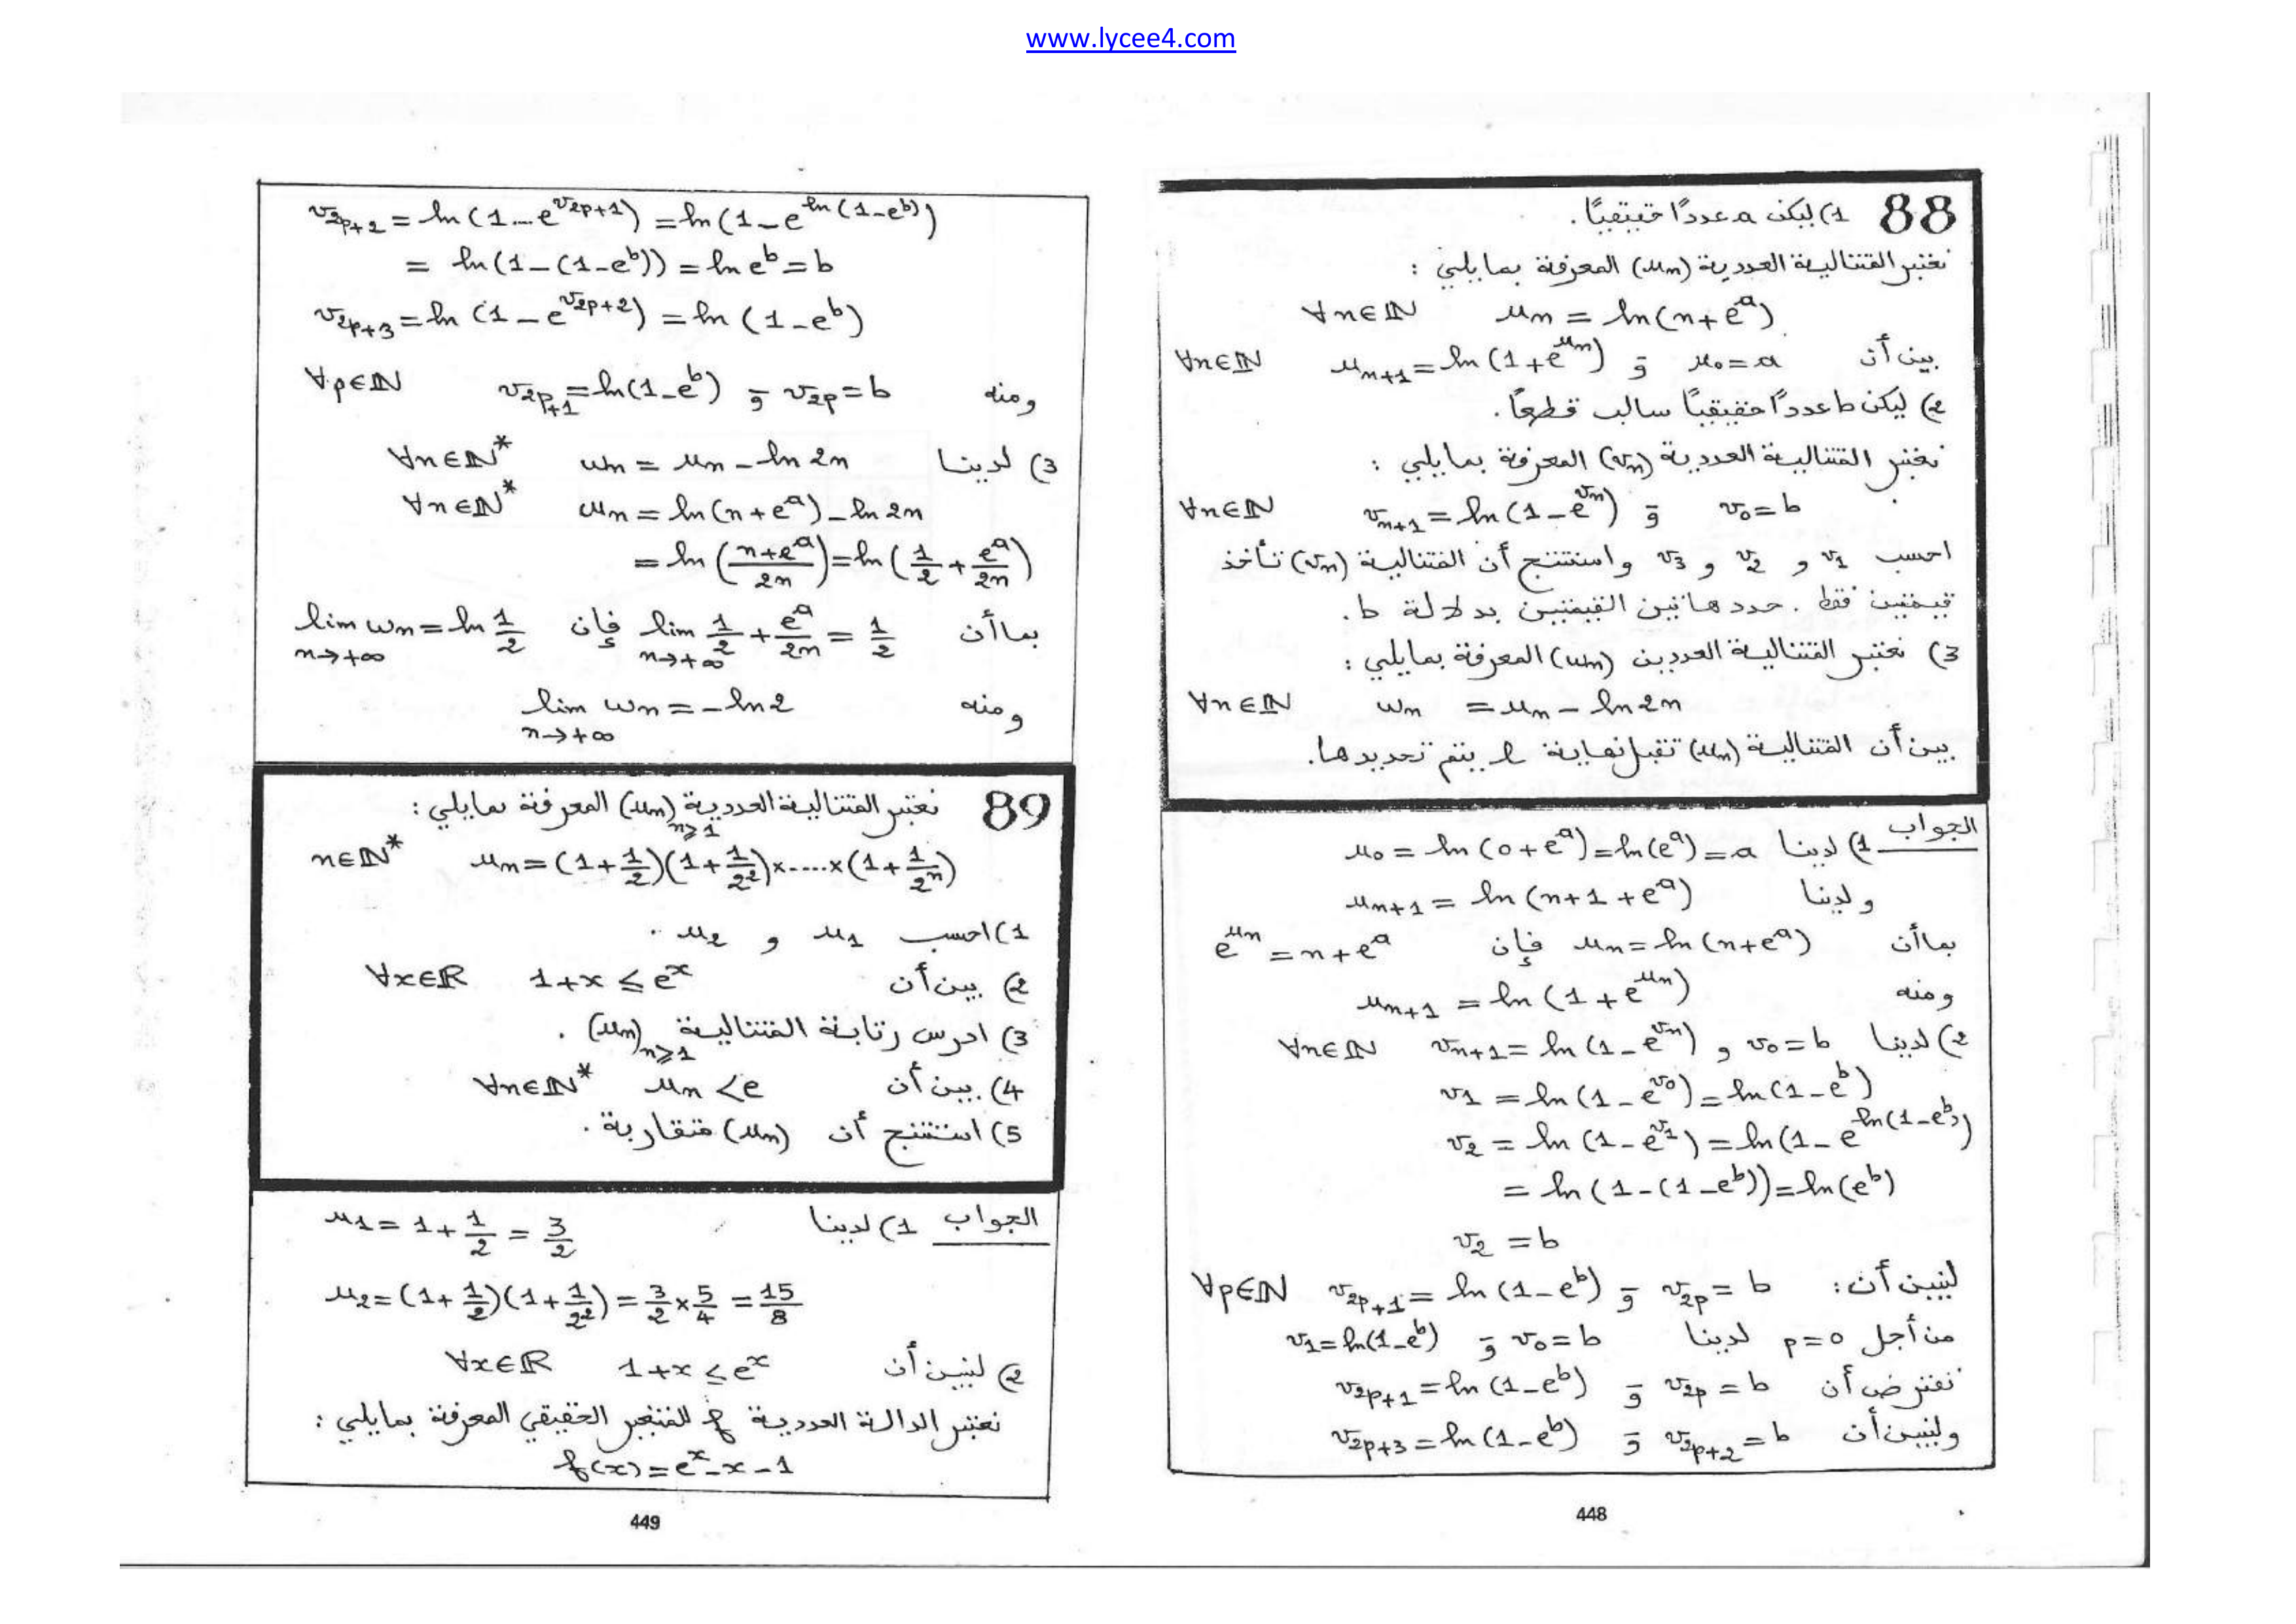 www.lycee4.com
88 1) ليكن a عددًا حقيقيًا.
نعتبر المتتالية العددية (u_n) المعرفة بمايلي :
∀n∈ℕ u_n = ln(n+e^a)
بين أن u_0 = a وَ u_{n+1} = ln(1+e^{u_n}) ∀n∈ℕ
2) ليكن b عددًا حقيقيًا سالب قطعًا.
نعتبر المتتالية العددية (v_n) المعرفة بمايلي :
v_0 = b وَ v_{n+1} = ln(1-e^{v_n}) ∀n∈ℕ
احسب v_1 و v_2 و v_3 واستنتج أن المتتالية (v_n) تأخذ
قيمتين فقط . حدد هاتين القيمتين بدلالة b.
3) نعتبر المتتالية العددين (w_n) المعرفة بمايلي :
∀n∈ℕ w_n = u_n - ln 2n
بين أن المتتالية (u_n) تقبل نهاية l يتم تحديدها.
الجواب 1) لدينا u_0 = ln(0+e^a) = ln(e^a) = a
ولدينا u_{n+1} = ln(n+1+e^a)
بما أن u_n = ln(n+e^a) فإن e^{u_n} = n+e^a
ومنه u_{n+1} = ln(1+e^{u_n})
2) لدينا v_0 = b و v_{n+1} = ln(1-e^{v_n}) ∀n∈ℕ
v_1 = ln(1-e^{v_0}) = ln(1-e^b)
v_2 = ln(1-e^{v_1}) = ln(1-e^{ln(1-e^b)})
= ln(1-(1-e^b)) = ln(e^b)
v_2 = b
لنبين أن: v_{2p} = b وَ v_{2p+1} = ln(1-e^b) ∀p∈ℕ
من أجل p=0 لدينا v_0 = b وَ v_1 = ln(1-e^b)
نفترض أن v_{2p} = b وَ v_{2p+1} = ln(1-e^b)
ولنبين أن v_{2p+2} = b وَ v_{2p+3} = ln(1-e^b)
448
v_{2p+2} = ln(1-e^{v_{2p+1}}) = ln(1-e^{ln(1-e^b)})
= ln(1-(1-e^b)) = ln e^b = b
v_{2p+3} = ln(1-e^{v_{2p+2}}) = ln(1-e^b)
ومنه v_{2p} = b وَ v_{2p+1} = ln(1-e^b) ∀p∈ℕ
3) لدينا w_n = u_n - ln 2n ∀n∈ℕ*
w_n = ln(n+e^a) - ln 2n ∀n∈ℕ*
= ln((n+e^a)/2n) = ln(1/2 + e^a/2n)
بما أن lim_{n→+∞} 1/2 + e^a/2n = 1/2 فإن lim_{n→+∞} w_n = ln 1/2
ومنه lim_{n→+∞} w_n = -ln 2
89 نعتبر المتتالية العددية (u_n)_{n≥1} المعرفة بمايلي :
n∈ℕ* u_n = (1+1/2)(1+1/2²)×.....×(1+1/2^n)
1) احسب u_1 و u_2 .
2) بين أن 1+x ≤ e^x ∀x∈ℝ
3) ادرس رتابة المتتالية (u_n)_{n≥1} .
4) بين أن u_n < e ∀n∈ℕ*
5) استنتج أن (u_n) متقاربة .
الجواب 1) لدينا u_1 = 1+1/2 = 3/2
u_2 = (1+1/2)(1+1/2²) = 3/2 × 5/4 = 15/8
2) لنبين أن 1+x ≤ e^x ∀x∈ℝ
نعتبر الدالة العددية f للمتغير الحقيقي المعرفة بمايلي :
f(x) = e^x - x - 1
449